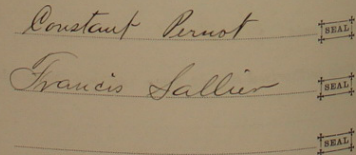 Constant Pernot SEAL
Francis Sallier SEAL
SEAL